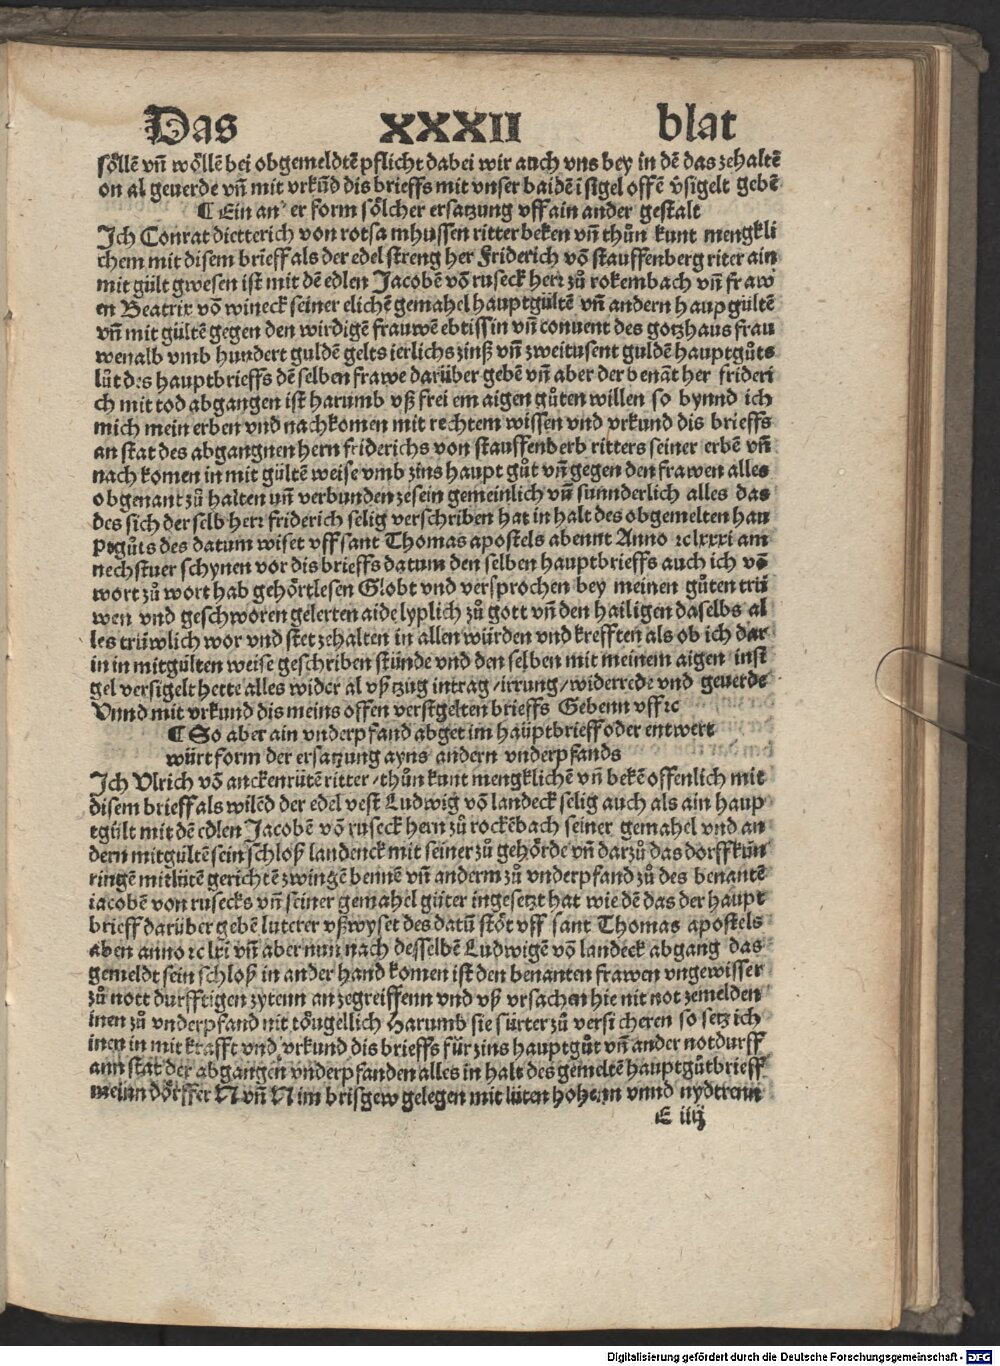 Das XXXII blat
söllē vn̄ wöllē bei obgemeldtē pflicht dabei wir auch vns bey in dē das zehaltē
on al geuerde vn̄ mit vrkūd dis brieffs mit vnser baidē isigel offē v̄sigelt gebē
¶ Ein an er form sölcher ersatzung vff ain ander gestalt
Ich Conrat dietterich von rotsa mhussen ritter beken vn̄ thůn kunt mengkli
chem mit disem brieff als der edel streng her Friderich vō stauffenberg riter ain
mit gült gwesen ist mit dē edlen Jacobē vō ruseck herr zů rokembach vn̄ fraw
en Beatrix vō wineck seiner elichē gemahel hauptgültē vn̄ andern haupgültē
vn̄ mit gültē gegen den wirdigē frauwē ebtissin vn̄ conuent des gotzhaus frau
wenalb vmb hundert guldē gelts ierlichs zinß vn̄ zweitusent guldē hauptgůts
lüt des hauptbrieffs dē selben frawe darüber gebē vn̄ aber der benāt her frideri
ch mit tod abgangen ist harumb vß frei em aigen gůten willen so bynnd ich
mich mein erben vnd nachkomen mit rechtem wissen vnd vrkund dis brieffs
an stat des abgangnen hern friderichs von stauffenberb ritters seiner erbē vn̄
nach komen in mit gültē weise vmb zins haupt gůt vn̄ gegen den frawen alles
obgenant zů halten vn̄ verbunden zesein gemeinlich vn̄ sunnderlich alles das
des sich der selb herr friderich selig verschriben hat in halt des obgemelten hau
ptgůts des datum wiset vff sant Thomas apostels abennt Anno ⁊clxxxi am
nechstuer schynen vor dis brieffs datum den selben hauptbrieffs auch ich vō
wort zů wort hab gehört lesen Globt vnd versprochen bey meinen gůten trü
wen vnd geschworen gelerten aide lyplich zů gott vn̄ den hailigen daselbs al
les trüwlich wor vnd stet zehalten in allen würden vnd krefften als ob ich dar
in in mitgülten weise geschriben stünde vnd den selben mit meinem aigen insi
gel versigelt hette alles wider al vßtzug intrag / irrung / widerrede vnd geuerde
Vnnd mit vrkund dis meins offen verstgelten brieffs Gebenn vff ⁊c
¶ So aber ain vnderpfand abget im haüptbrieff oder entwert
würt form der ersatzung ayns andern vnderpfands
Ich Vlrich vō anckenrütē ritter / thůn kunt mengklichē vn̄ bekē offenlich mit
disem brieff als wilēd der edel vest Ludwig vō landeck selig auch als ain haup
tgült mit dē edlen Jacobē vō ruseck hern zů rockēbach seiner gemahel vnd an
dern mitgültē sein schloß landenck mit seiner zů gehörde vn̄ darzů das dorff kün
ringē mit lütē gerichtē zwingē bennē vn̄ anderm zů vnderpfand zů des benantē
iacobē von rusecks vn̄ seiner gemahel güter ingesetzt hat wie dē das der haupt
brieff darüber gebē luterer vßwyset des datū stöt vff sant Thomas apostels
aben anno ⁊c lxi vn̄ aber nun nach desselbē Ludwigē vō landeck abgang das
gemeldt sein schloß in ander hand komen ist den benanten frawen vngewisser
zů nott durfftigen zytenn an zegreiffenn vnd vß vrsachen hie nit not zemelden
inen zů vnderpfand nit töugellich Harumb sie fürter zů versicheren so setz ich
inen in mit krafft vnd vrkund dis brieffs für zins hauptgůt vn̄ ander notdurff
ann stat der abgangen vnderpfanden alles in halt des gemeltē hauptgůtbrieff
meinn dörffer N vn̄ N im brisgew gelegen mit lüten hohenn vnnd nydtrenn
E iiij
Digitalisierung gefördert durch die Deutsche Forschungsgemeinschaft - DFG